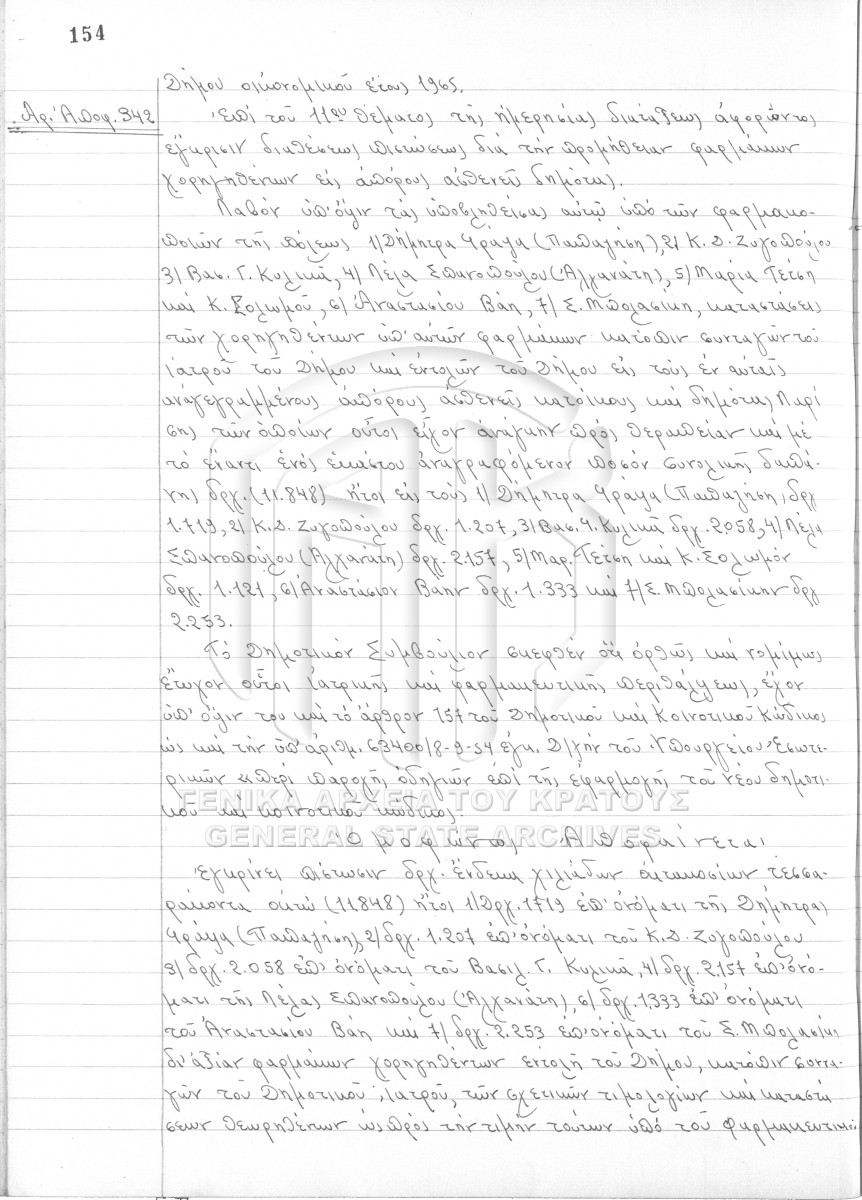 154
Δήμου οικονομικού έτους 1965.
Αρ. Αποφ. 342
Επί του 11ου θέματος της ημερησίας διατάξεως αφορώντος
έγκρισιν διαθέσεως πιστώσεως διά την προμήθειαν φαρμάκων
χορηγηθέντων εις απόρους ασθενείς δημότας.
Λαβόν υπ' όψιν τας υποβληθείσας αυτώ υπό των φαρμακο-
ποιών της πόλεως 1) Δήμητρα Φράγκα (Παπαγήση), 2) Κ. Δ. Ζυγοπούλου
3) Βασ. Γ. Κυλικά, 4) Λέλα Σπανοπούλου (Αλχανάτη), 5) Μαρία Τέτση
και Κ. Σολωμού, 6) Αναστασίου Βάη, 7) Σ. Μπολασίκη, καταστάσεις
των χορηγηθέντων υπ' αυτών φαρμάκων κατόπιν συνταγών του
Ιατρού του Δήμου και εντολών του Δήμου εις τους εν αυταίς
αναγεγραμμένους απόρους ασθενείς κατοίκους και δημότας Λαρί
σης των οποίων ούτοι είχον ανάγκην προς θεραπείαν και με
το έναντι ενός εκάστου αναγραφόμενον ποσόν συνολικής δαπά-
νης δρχ. (11.848) ήτοι εις τους 1) Δήμητρα Φράγκα (Παπαγήση) δρχ
1.719, 2) Κ.Δ. Ζυγοπούλου δρχ. 1.207, 3) Βασ. Γ. Κυλικά δρχ. 2.058, 4) Λέλα
Σπανοπούλου (Αλχανάτη) δρχ. 2.157, 5) Μαρ. Τέτση και Κ. Σολωμόν
δρχ. 1.121, 6) Αναστάσιον Βάην δρχ. 1.333 και 7) Σ. Μπολασίκην δρχ
2.253.
Το Δημοτικόν Συμβούλιον σκεφθέν ότι ορθώς και νομίμως
έτυχον ούτοι ιατρικής και φαρμακευτικής περιθάλψεως, έχον
υπ' όψιν του και το άρθρον 157 του Δημοτικού και Κοινοτικού Κώδικος
ως και την υπ' αριθμ. 63400/8-9-54 εγκ. Δ/γήν του Υπουργείου Εσωτε-
ρικών «περί παροχής οδηγιών επί της εφαρμογής του νέου δημοτι-
κού και κοινοτικού κώδικος.
ΓΕΝΙΚΑ ΑΡΧΕΙΑ ΤΟΥ ΚΡΑΤΟΥΣ
GENERAL STATE ARCHIVES
Ομοφώνως Αποφαίνεται
Εγκρίνει πίστωσιν δρχ. ένδεκα χιλιάδων οκτακοσίων τεσσα-
ράκοντα οκτώ (11.848) ήτοι 1) Δρχ. 1719 επ' ονόματι της Δήμητρας
Φράγκα (Παπαγήση), 2) δρχ. 1.207 επ' ονόματι του Κ.Δ. Ζυγοπούλου
3) δρχ. 2.058 επ' ονόματι του Βασιλ. Γ. Κυλικά, 4) δρχ. 2.157 επ' ονό-
ματι της Λέλας Σπανοπούλου (Αλχανάτη), 6) δρχ. 1.333 επ' ονόματι
του Αναστασίου Βάη και 7) δρχ. 2.253 επ' ονόματι του Σ. Μπολασίκη
δι' αξίαν φαρμάκων χορηγηθέντων εντολή του Δήμου, κατόπιν συντα-
γών του Δημοτικού Ιατρού, των σχετικών τιμολογίων και καταστά
σεων θεωρηθέντων ως προς την τιμήν τούτων υπό του Φαρμακευτικού